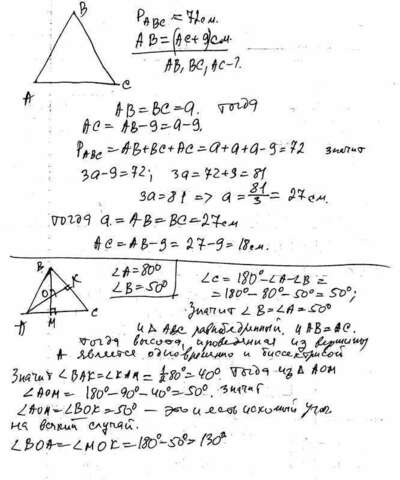 B
A
C
P_ABC = 72 см.
AB = (AC+9) см.
AB, BC, AC-?
AB = BC = a. тогда
AC = AB-9 = a-9.
P_ABC = AB+BC+AC = a+a+a-9 = 72 значит
3a-9=72; 3a=72+9=81
3a=81 => a = 81/3 = 27 см.
тогда a = AB = BC = 27 см
AC = AB-9 = 27-9 = 18 см.
B
K
O
A
M
C
∠A = 80°
∠B = 50°
∠C = 180°-∠A-∠B =
= 180°-80°-50° = 50°;
Значит ∠B = ∠A = 50°
и ΔABC равнобедренный и AB=AC.
Тогда высота, проведенная из вершины
A является одновременно и биссектрисой
Значит ∠BAK = ∠KAM = 1/2 80° = 40°. Тогда из ΔAOM
∠AOM = 180°-90°-40° = 50°. значит
∠AOM = ∠BOK = 50° — это и есть искомый угол
на всякий случай.
∠BOA = ∠MOK = 180°-50° = 130°